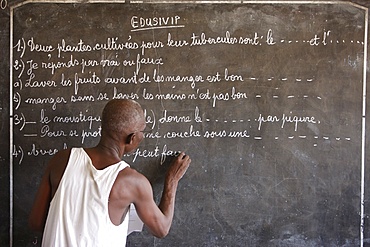 EDUSIVIP
1) Deux plantes cultivées pour leur tubercules sont : le ------ et l'-----
2) Je réponds par vrai ou faux
a) Laver les fruits avant de les manger est bon -----
b) manger sans se laver les mains n'est pas bon -----
3) __ le moustique le) donne le ------ par piqure.
__ Pour se pro me, couche sous une ------
4) Avec peut fa